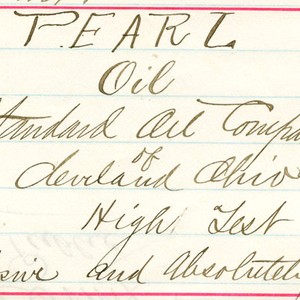 PEARL
Oil
Standard Oil Compa
of
Cleveland Ohio
High Test
sive and Absolutely